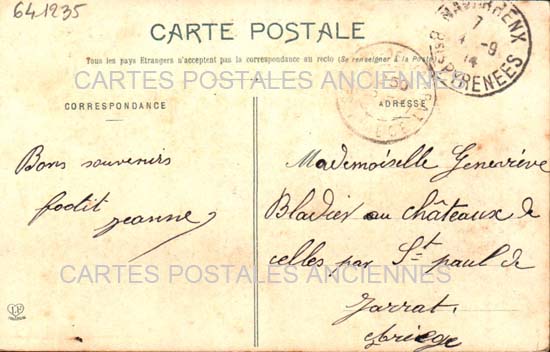 641235
CARTE POSTALE
Tous les pays Etrangers n'acceptent pas la correspondance au recto (Se renseigner à la Poste)
CARTES POSTALES ANCIENNES
CORRESPONDANCE
ADRESSE
NAVARRENX
7
-9
14
BSES PYRENEES
Bons souvenirs
jeanne
Mademoiselle Geneviève
Bladier au châteaux de
celles par St paul de
Jarrat.
Ariège
CARTES POSTALES ANCIENNES